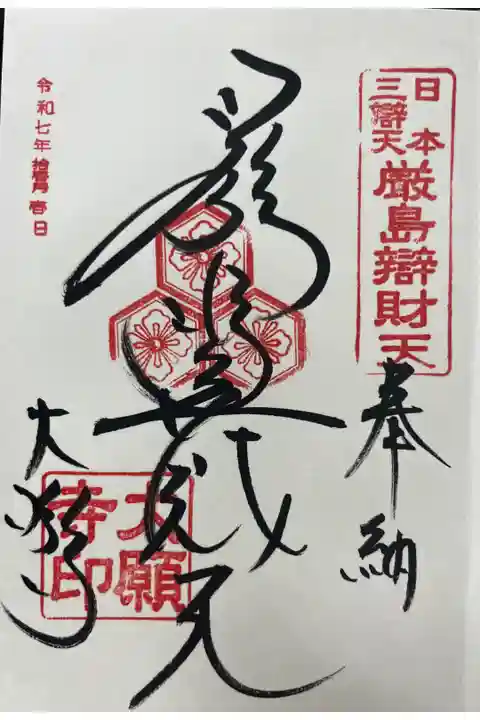 日本
三辯天
厳島辯財天
奉納
嚴嶋辯戈天
令和七年拾壹月壱日
大願寺
大願
寺印